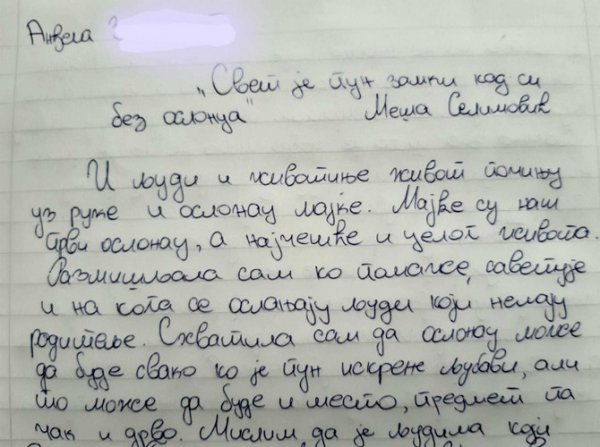 Анђела
„Свет је пун замки кад си
без ослонца" Меша Селимовић
И људи и животиње живот почињу
уз руке и ослонац мајке. Мајке су наш
први ослонац, а најчешће и целог живота.
Размишљала сам ко помаже, саветује
и на кога се ослањају људи који немају
родитеље. Схватила сам да ослонац може
да буде свако ко је пун искрене љубави, али
то може да буде и место, предмет па
чак и дрво. Мислим да је људима који